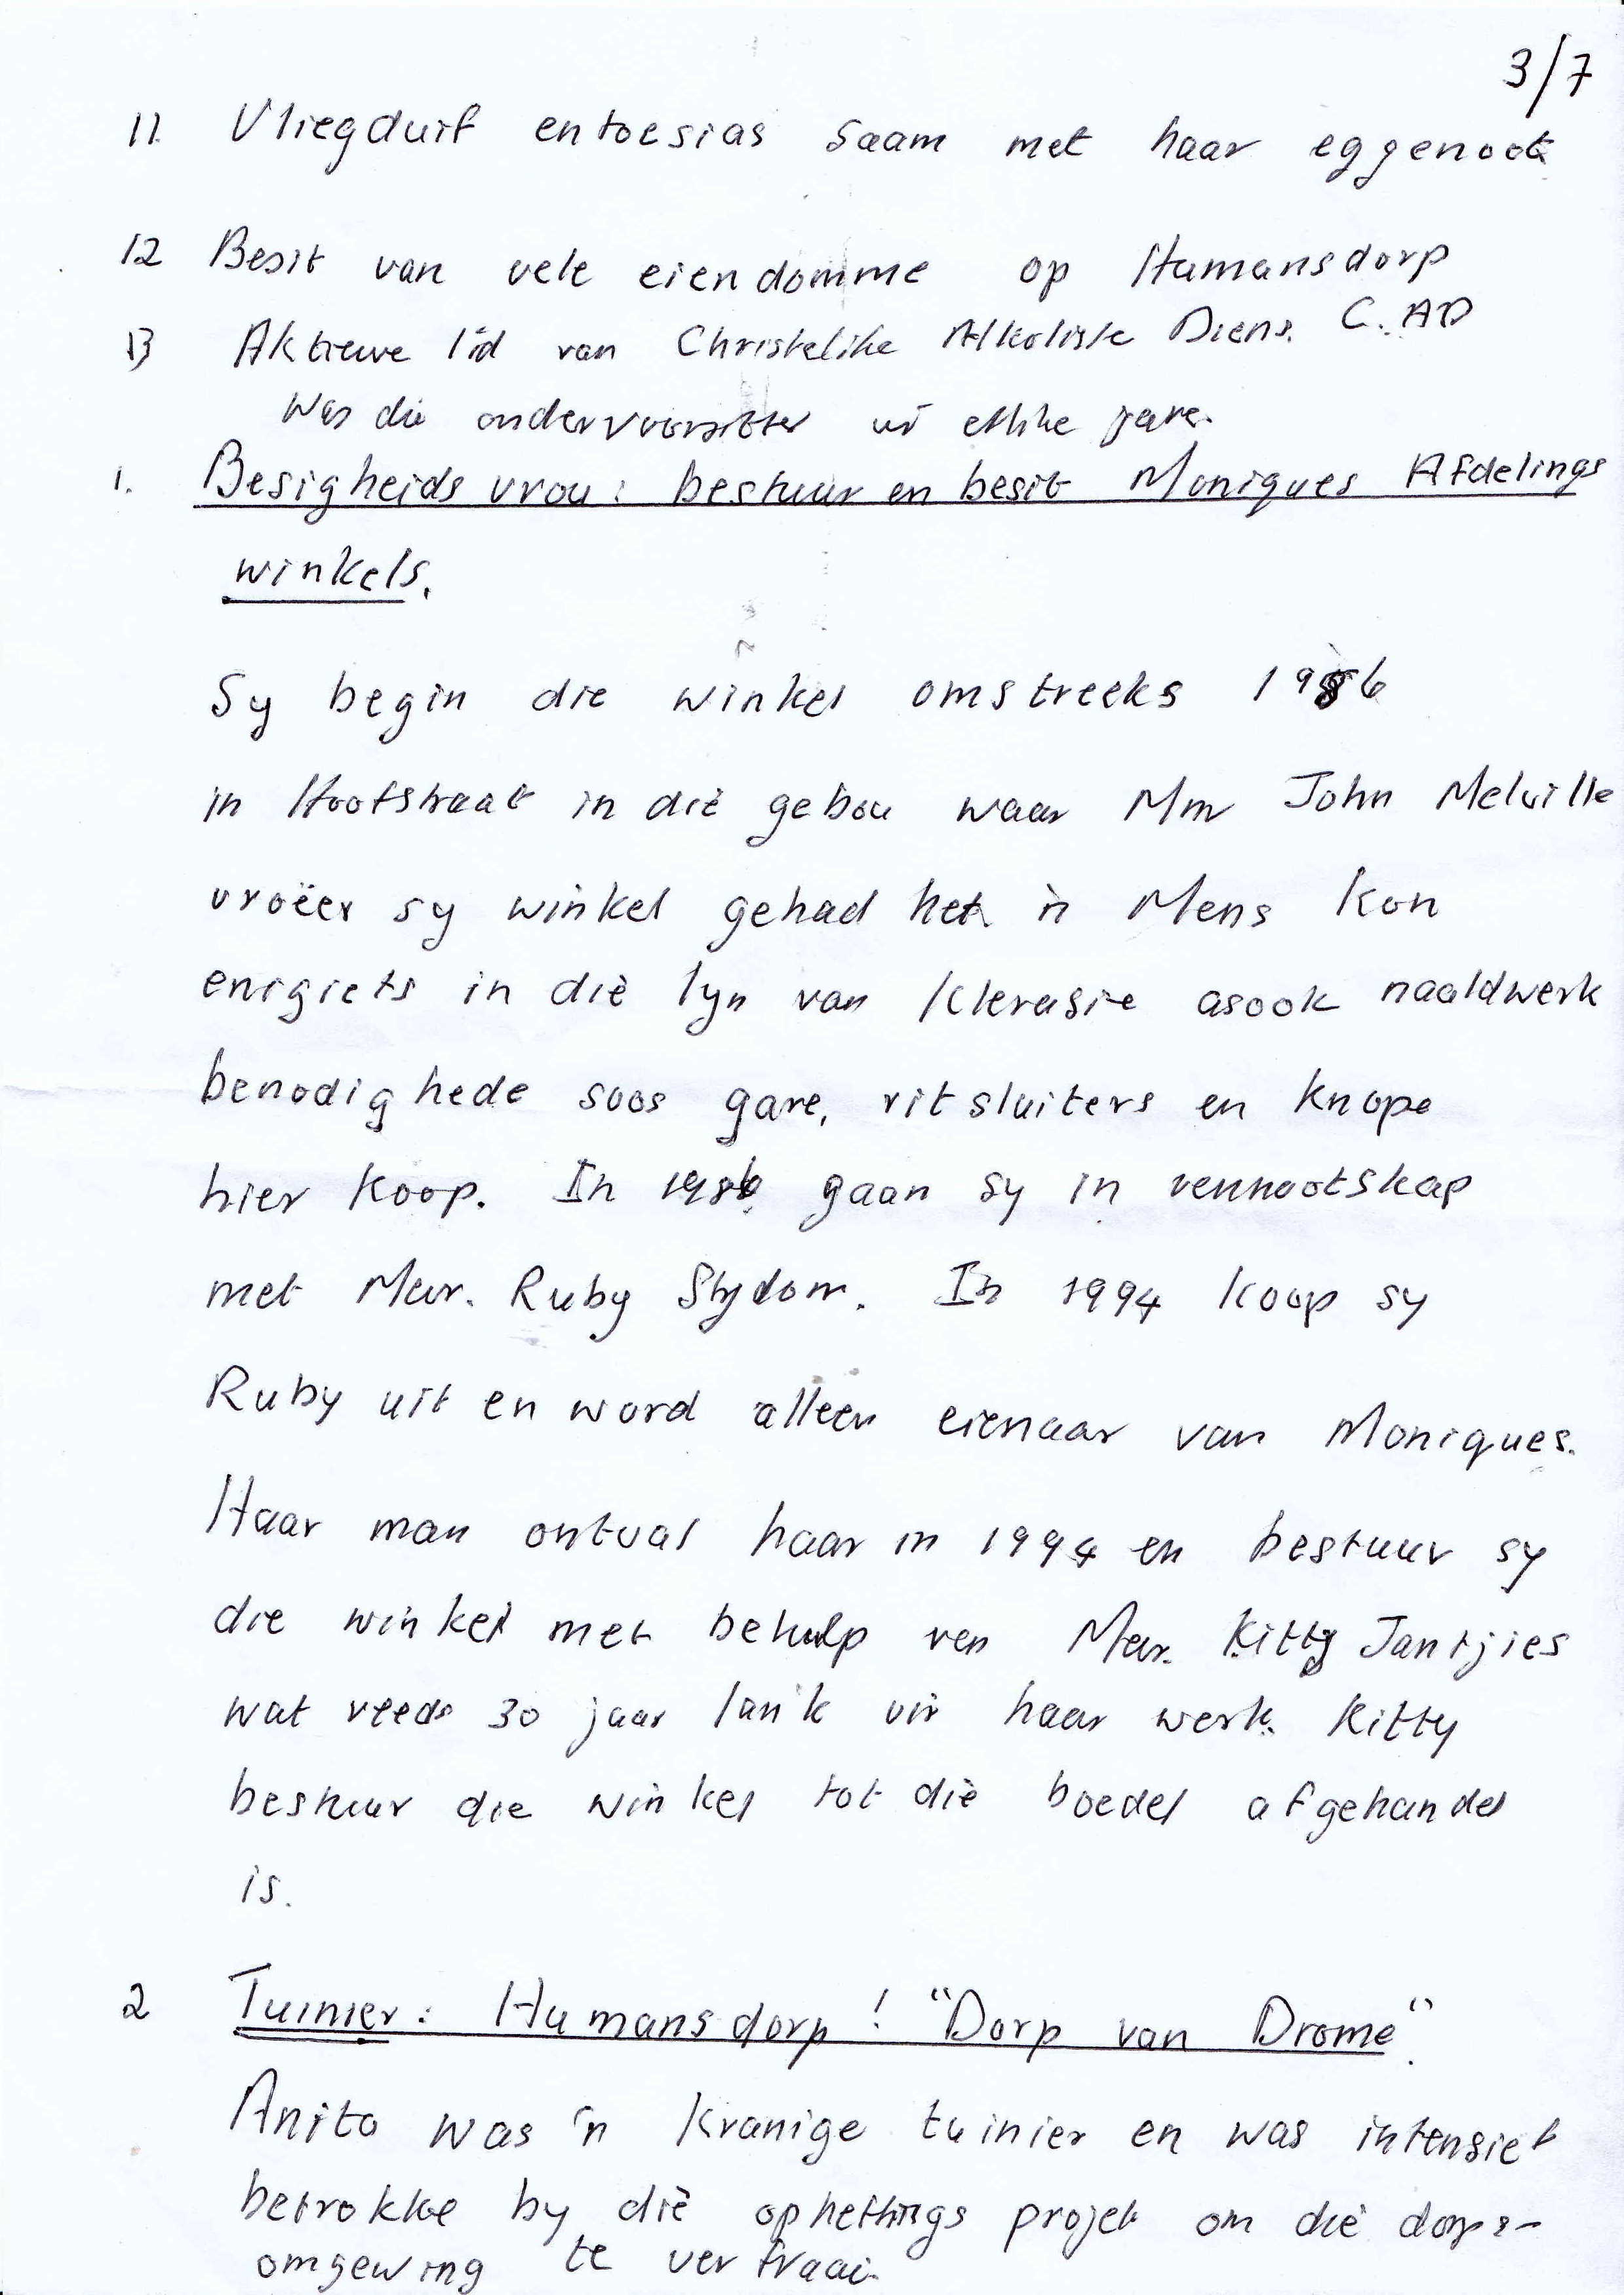 3/7
11. Vliegduif entoesias saam met haar eggenoot
12 Besit van vele eiendomme op Humansdorp
13 Aktiewe lid van Christelike Alkoliste Diens. C.AD
Was die ondervoorsitter vir etlike jare.
1. Besigheids vrou: bestuur en besit Moniques Afdelings
winkels.
Sy begin die winkel omstreeks 1986
in Hoofstraat in die gebou waar Mnr John Melville
vroëer sy winkel gehad het. 'n Mens kon
enigiets in die lyn van Klerasie asook naaldwerk
benodighede soos gare, ritsluiters en knope
hier koop. In 1986 gaan sy in vennootskap
met Mev. Ruby Strydom. In 1994 koop sy
Ruby uit en word alleen eienaar van Moniques.
Haar man ontval haar in 1994 en bestuur sy
die winkel met behulp van Mev. Kitty Jantjies
wat reeds 30 jaar lank vir haar werk. Kitty
bestuur die winkel tot die boedel afgehandel
is.
2 Tuinier: Humansdorp! "Dorp van Drome".
Anita was 'n kranige tuinier en was intensief
betrokke by die opheffings projek om die dorps-
omgewing te verfraai.